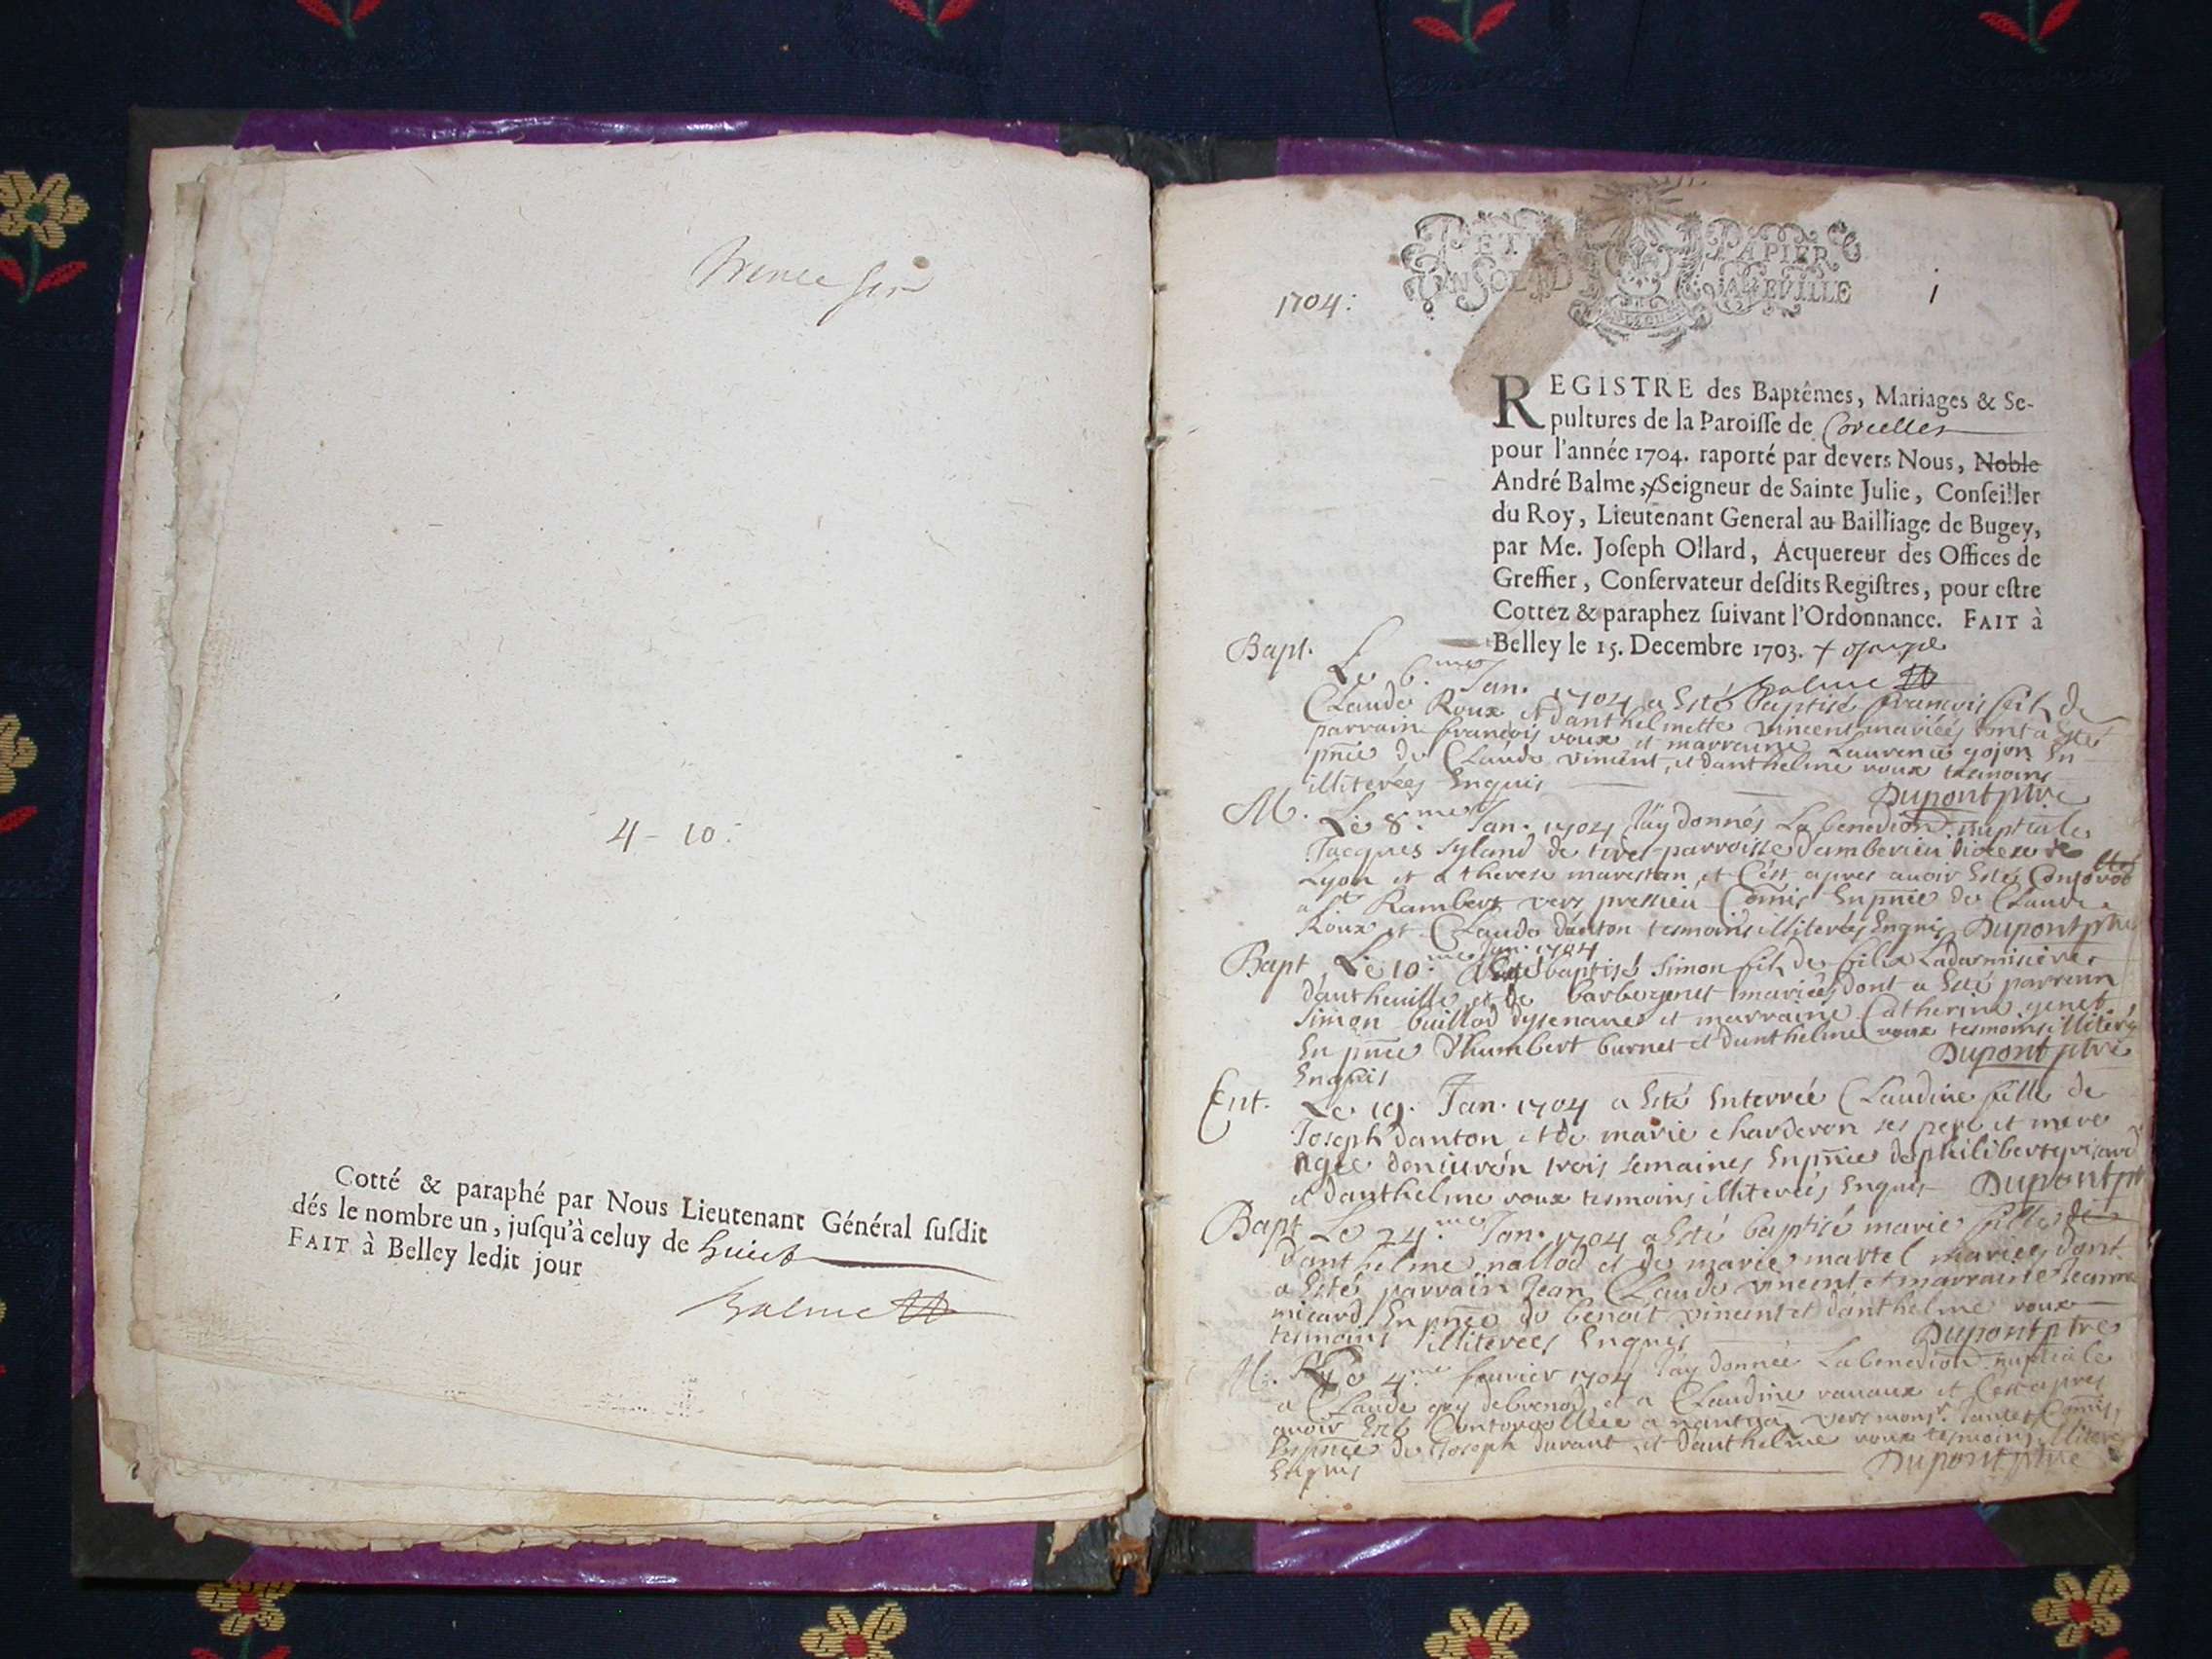 4 - 10.
Cotté & paraphé par Nous Lieutenant Général susdit
dés le nombre un, jusqu'à celuy de huict
FAIT à Belley ledit jour
Balme
PETIT PAPIER
UN SOL
1704:
1
REGISTRE des Baptêmes, Mariages & Se-
pultures de la Paroisse de Corcelles
pour l'année 1704. raporté par devers Nous, Noble
André Balme, Seigneur de Sainte Julie, Conseiller
du Roy, Lieutenant General au Bailliage de Bugey,
par Me. Joseph Ollard, Acquereur des Offices de
Greffier, Conservateur desdits Registres, pour estre
Cottez & paraphez suivant l'Ordonnance. FAIT à
Belley le 15. Decembre 1703.
Balme
Bapt. Le 6.me Jan. 1704 a Esté baptisé francois fils de
Claude Roux et danthelmette vincent mariées dont a Esté
parrain francois roux et marraine Laurence gojon En
pnce de Claude vincent, et danthelme roux temoins
illiterées Enquis Dupont ptre
M. Le 8.me Jan. 1704 J'ay donnés La benediction nuptiale
Jacques de parroisse d'amberieu diocese de
Lyon et a therese marestan et C'est apres avoir Esté
a St Rambert vers Commis En pnce de Claude
Roux et Claude danton tesmoins illiterées Enquis Dupont ptre
Bapt Le 10.me Jan. 1704 a Esté baptisé Simon fils de felix
et de mariées dont a Esté parrain
Simon et marraine Catherine genet
En pnce d'humbert burnet et danthelme roux tesmoins illiterés
Enquis Dupont ptre
Ent. Le 19. Jan. 1704 a Esté Enterrée Claudine fille de
Joseph danton et de marie charderon ses pere et mere
Agée denviron trois semaines En pnce de philibert
et danthelme roux tesmoins illiterées Enquis Dupont pt
Bapt Le 24.me Jan. 1704 a Esté baptisé marie fille de
danthelme nallod et de marie martel mariees dont
a Esté parrain Jean Claude vincent et marraine Jeanne
micard En pnce de benoit vincent et danthelme roux
tesmoins illiterees Enquis Dupont ptre
M. Le 4.me fevrier 1704 J'ay donnée La benediction nuptiale
a Claude guy de brenod et a Claudine ravaux et C'est apres
avoir Esté a nantua vers monsr. Commis,
En pnce de Joseph durant et danthelme roux tesmoins illiteré
Enquis Dupont ptre